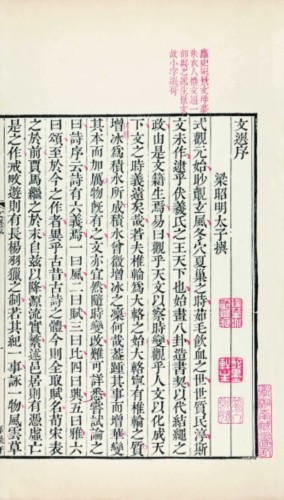 文選序
梁昭明太子撰
式觀元始眇覿玄風冬穴夏巢之時茹毛飲血之世世質民淳斯
文未作逮乎伏羲氏之王天下也始畫八卦造書契以代結繩之
政由是文籍生焉易曰觀乎天文以察時變觀乎人文以化成天
下文之時義遠矣哉若夫椎輪爲大輅之始大輅寧有椎輪之質
增冰爲積水所成積水曾微增冰之凜何哉蓋踵其事而增華變
其本而加厲物既有之文亦宜然隨時變改難可詳悉嘗試論之
曰詩序云詩有六義焉一曰風二曰賦三曰比四曰興五曰雅六
曰頌至於今之作者異乎古昔古詩之體今則全取賦名荀宋表
之於前賈馬繼之於末自茲以降源流實繁述邑居則有憑虛亡
是之作戒畋遊則有長楊羽獵之制若其紀一事詠一物風雲草